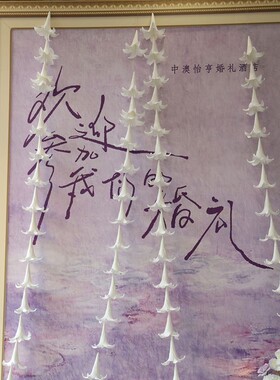 中澳怡亨婚礼酒店
欢迎
参加
我们的
婚礼